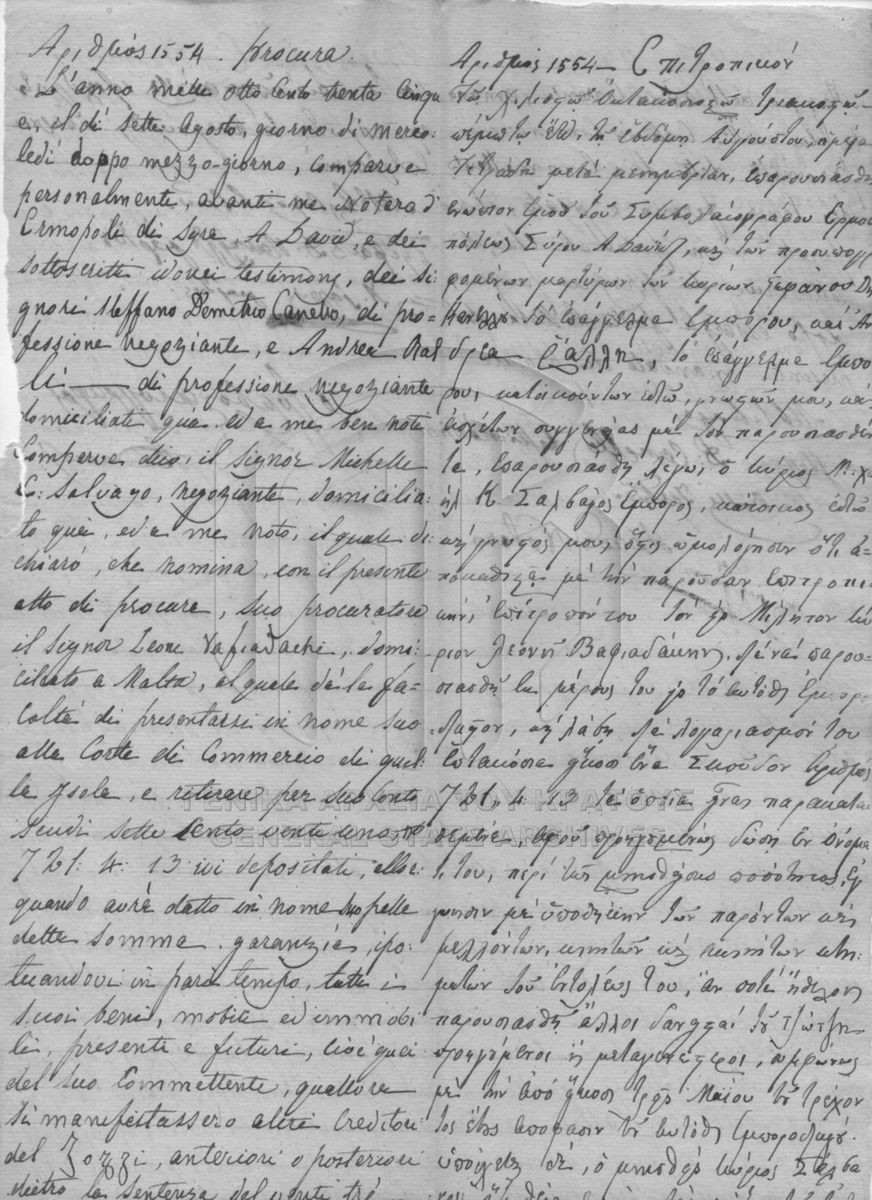 Αριθμός 1554. procura
L'anno mille otto cento trenta cinqu
e, il di sette Agosto, giorno di merco=
ledi doppo mezzo-giorno, comparve
personalmente, avanti me Notaro d'
Ermopoli di Syra, A David, e dei
sottoscritti idonei testimonj, dei si
gnori Steffano Demetrio Canello, di pro=
fessione negoziante, e Andrea Ral
li — di professione negoziante
domiciliati qua ed a me ben noti
Comparve dico, il signor Michelle
C: Salvago, negoziante, domicilia=
to qui, ed a me noto, il quale di=
chiaró, che nomina, con il presente
atto di procura, suo procuratore
il signor Leone Vafiadachi, domi=
ciliato a Malta, al quale dà la fa=
coltà di presentarsi in nome suo
alla Corte di Commercio di quel=
la Isola, e retirare per suo conto
scudi sette cento vente uno
721: 4: 13 ivi depositati, allor
quando avrà datto in nome suo pella
detta somma garanzia, ipo=
tecandovi in pari tempo, tutti i
suoi beni, mobili ed immobi
li, presenti e futuri, cioè quei
del suo Committente, qualora
si manifestassero altri creditori
del Zozzi, anteriori o posteriori
dietro la sentenza del venti tré
Αριθμός 1554 — Επιτροπικόν
Τῷ χιλιοστῷ ὀκτακοσιοστῷ τριακοστῷ
πέμπτῳ ἔτει, τῇ ἑβδόμῃ Αὐγούστου, ἡμέρᾳ
Τετράδῃ μετὰ μεσημβρίαν, ἐπαρουσιάσθη
ἐνώπιον ἐμοῦ τοῦ Συμβολαιογράφου Ερμου
πόλεως Σύρου Α Δαυὶδ, καὶ τῶν προσυπογρ
φομένων μαρτύρων τῶν κυρίων Στεφάνου Δη
Κανελλῆ τὸ ἐπάγγελμα ἐμπόρου, καὶ Αν
δρέα Ράλλη, τὸ ἐπάγγελμα ἐμπό
ρου, κατοικούντων ἐδῶ, γνωστῶν μου, καὶ
ἀσχέτων συγγενείας μὲ τὸν παρουσιασθέν
τα, ἐπαρουσιάσθη λέγω, ὁ κύριος Μιχα
ὴλ Κ Σαλβάγος ἔμπορος, κάτοικος ἐδῶ
καὶ γνωστός μου, ὅστις ὡμολόγησεν ὅτι ἀ=
ποκαθιστᾷ μὲ τὴν παροῦσαν ἐπιτροπι
κὴν, ἐπίτροπόν του τὸν εἰς Μελίτην κύ
ριον Λεονῆ Βαφιαδάκην, διὰ νὰ παρου=
σιασθῇ ἐκ μέρους του εἰς τὸ αὐτόθι Ἐμπορο
δικεῖον, καὶ λάβῃ διὰ λογαριασμόν του
ἑπτακόσια εἴκοσι ἕνα Σκοῦδον ἀριθμὸς
721,, 4: 13 τὰ ὁποῖα εἶναι παρακατα
τεθειμένα, ἀφοῦ προηγουμένως δώσῃ ἐν ὀνόμα
τί του, περὶ τῆς μνησθείσης ποσότητος, ἐγ
γύησιν μὲ ὑποθήκην τῶν παρόντων καὶ
μελλόντων, κινητῶν καὶ ἀκινήτων κτη=
μάτων τοῦ ἐντολέως του, ἂν ποτὲ ἤθελον
παρουσιασθῆ ἄλλοι δανεισταὶ τοῦ Τζώτζη
προηγούμενοι ἢ μεταγενέστεροι, συμφώνως
μὲ τὴν ἀπὸ εἴκοσι τρεῖς Μαΐου τοῦ τρέχον
τος ἔτους ἀπόφασιν τοῦ αὐτόθι Ἐμποροδικείου.
ὑπόσχεται δὲ, ὁ μνησθεὶς κύριος Σαλβα
ΓΕΝΙΚΑ ΑΡΧΕΙΑ ΤΟΥ ΚΡΑΤΟΥΣ
GENERAL STATE ARCHIVES